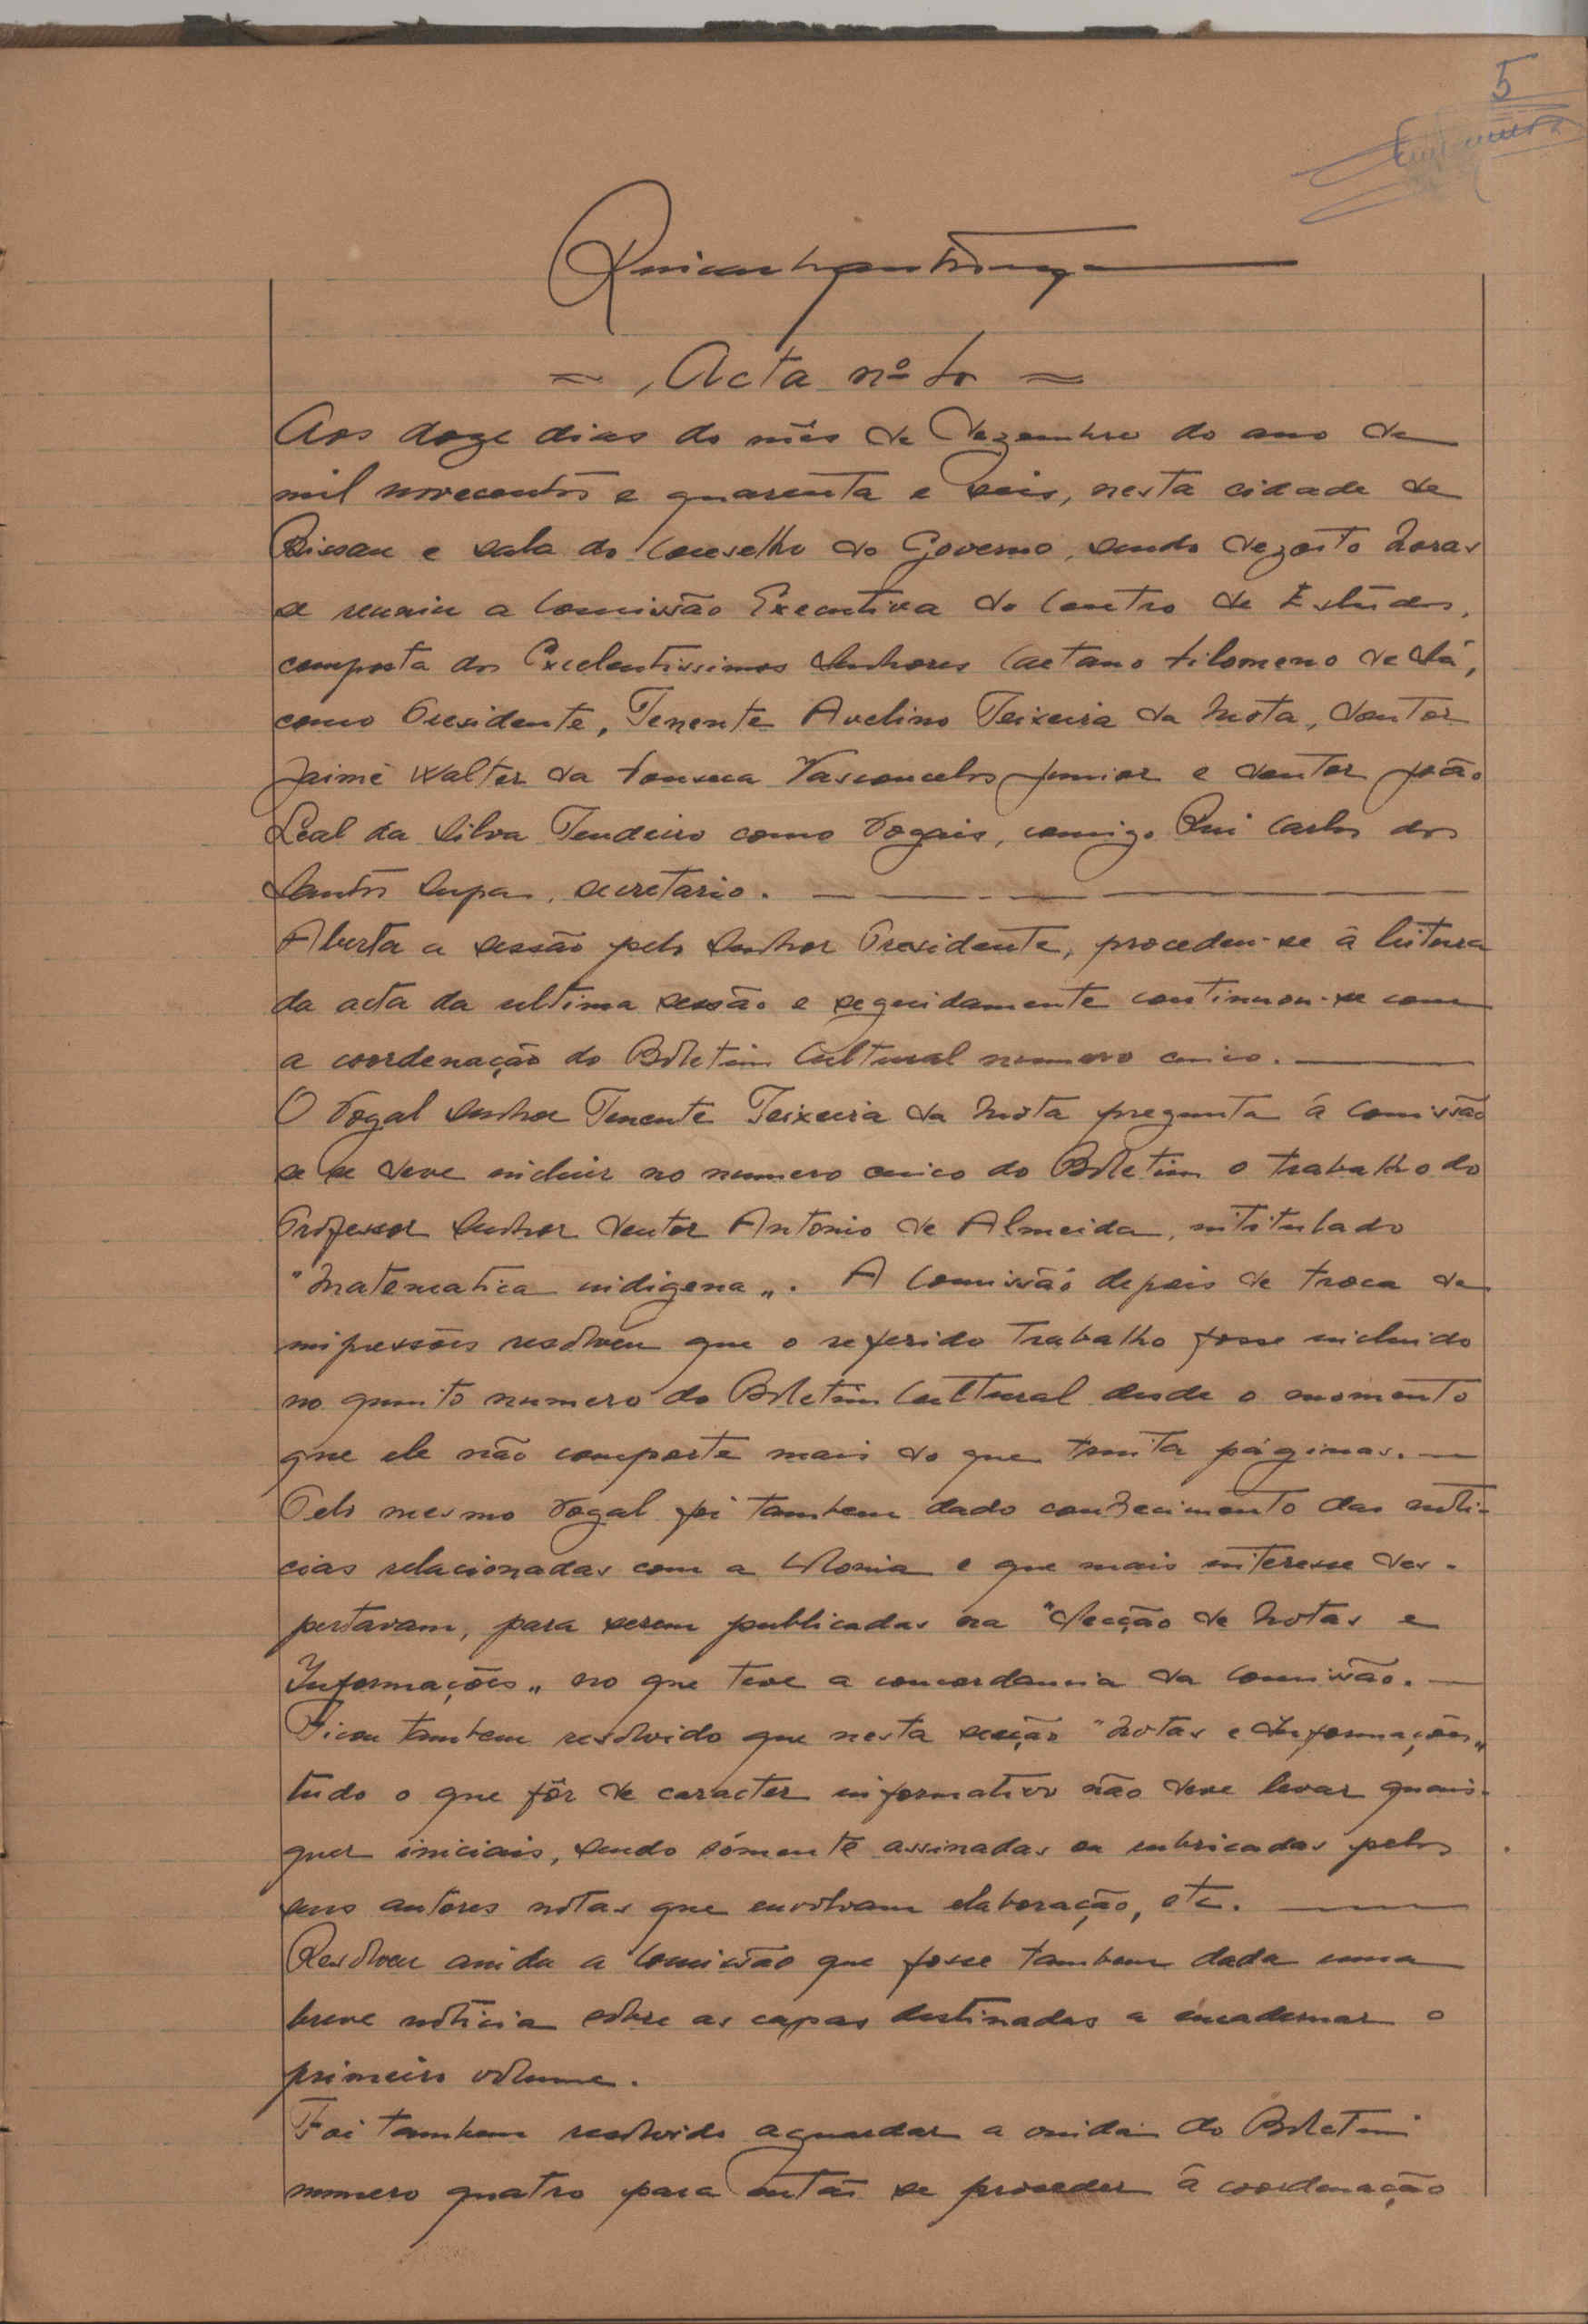 5
= Acta nº =
Aos doze dias do mês de Dezembro do ano de
mil novecentos e quarenta e seis, nesta cidade de
Bissau e sala do Conselho do Governo, sendo dezoito horas
se reuniu a Comissão Executiva do Centro de Estudos,
composta dos Excelentissimos Senhores Caetano Filomeno de Sá,
como Presidente, Tenente Avelino Teixeira da Mota, doutor
Jaime Walter da Fonseca Vasconcelos Junior e doutor João
Leal da Silva Tendeiro como Vogais, comigo Rui Carlos dos
Santos, secretario.
Aberta a sessão pelo Senhor Presidente, procedeu-se á leitura
da acta da ultima sessão e seguidamente continuou-se com
a coordenação do Boletim Cultural numero cinco.
O Vogal Senhor Tenente Teixeira da Mota pregunta á Comissão
se se deve incluir no numero cinco do Boletim o trabalho do
Professor Senhor doutor Antonio de Almeida, intitulado
"Matematica indigena". A Comissão depois de troca de
impressões resolveu que o referido trabalho fosse incluido
no quinto numero do Boletim Cultural desde o momento
que ele não comporte mais do que trinta páginas.
Pelo mesmo Vogal foi tambem dado conhecimento das noti-
cias relacionadas com a Colonia e que mais interesse des-
pertavam, para serem publicadas na "Secção de Notas e
Informações" no que teve a concordancia da Comissão.
Ficou tambem resolvido que nesta secção "Notas e Informações"
tudo o que fôr de caracter informativo não deve levar quais-
quer iniciais, sendo sómente assinadas ou rubricadas pelos
seus autores notas que envolvam elaboração, etc.
Resolveu ainda a Comissão que fosse tambem dada uma
breve noticia sobre as capas destinadas a encadernar o
primeiro volume.
Foi tambem resolvido aguardar a saida do Boletim
numero quatro para então se proceder á coordenação